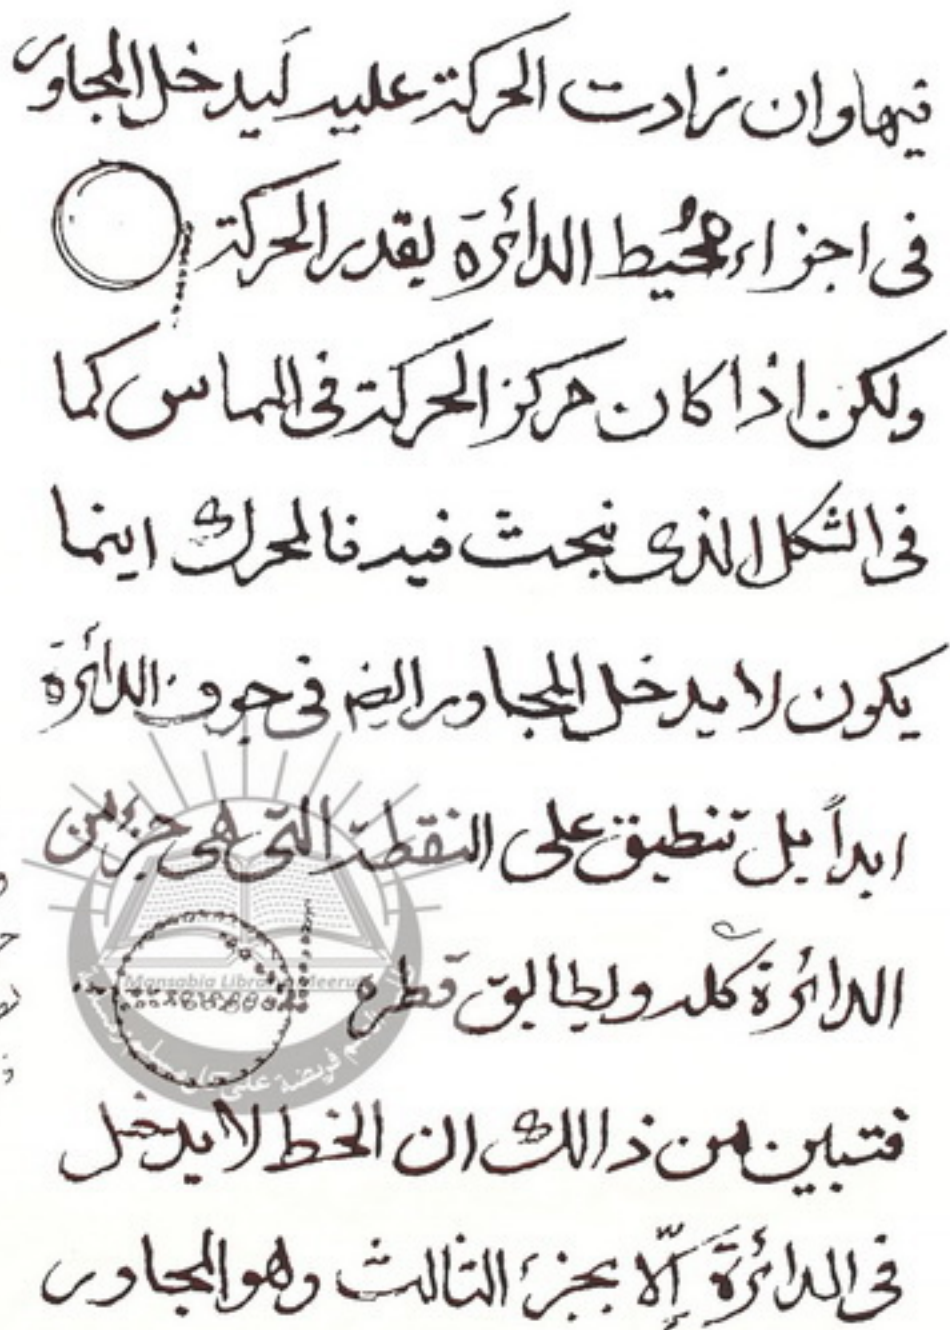 فيها وان زادت الحركة عليه ليدخل المجاور
فى اجزاء محُيط الدائرَة بقدر الحركة
ولكن اذا كان مركز الحركة فى المماس كما
فى الشكل الذى نبحث فيه فالمحرك اينما
يكون لا يدخل المجاور الضم فى جوف الدائرَة
ابداً بل تنطبق على النقطة التى هى جزء من
الدائرة كله ويطابق قطره
Mansabia Library Meerut
فريضة على كل مسلم
فتبين من ذالك ان الخط لا يدخل
فى الدائرَة إلّا بجزء الثالث وهو المجاور